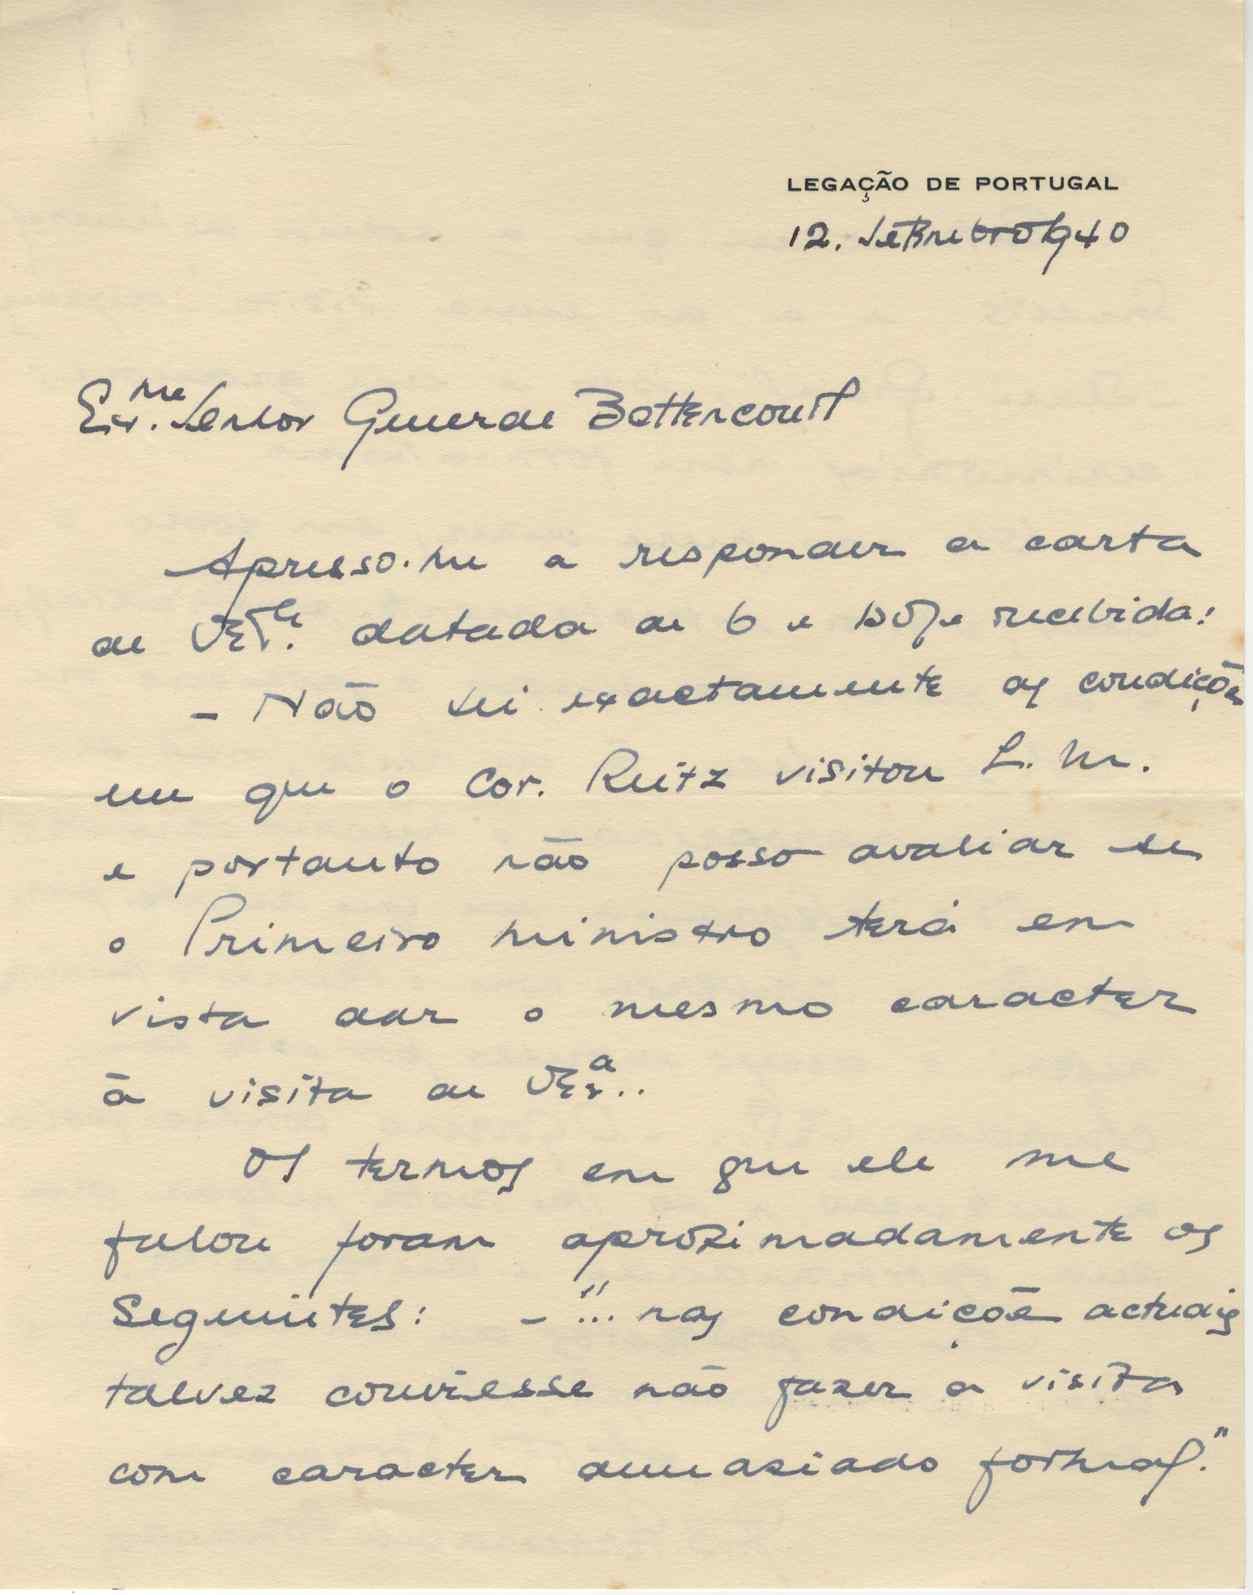 LEGAÇÃO DE PORTUGAL
12. Setembro 1940
Exmo. Senhor General Bettencourt
Apresso-me a responder a carta
de VExa. datada de 6 e hoje recebida:
- Não sei exactamente as condições
em que o Cor. Reitz visitou L. M.
e portanto não posso avaliar se
o Primeiro ministro terá em
vista dar o mesmo caracter
à visita de VExa..
Os termos em que ele me
falou foram aproximadamente os
seguintes: - "... nas condições actuais
talvez conviesse não fazer a visita
com caracter demasiado formal."